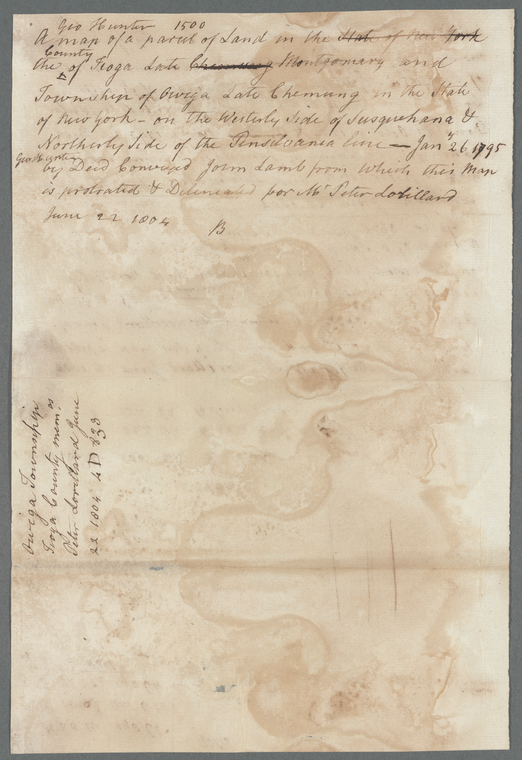 Geo Hunter 1500
A map of a parcel of Land in the State of New York
County
the of Tioga Late Chemung Montgomary and
Township of Owega Late Chemung in the State
of New York - on the Westerly Side of Susquehana &
Northerly Side of the Pensilvania line — Jany 26 1795
Geo Hunter
by Deed Conveyed John Lamb from which this Map
is protrated & Delineated for Mr Peter Lorillard
June 22 1804 B
Owega Township
Tioga County mem.
Peter Lorillard June
22 1804 4D